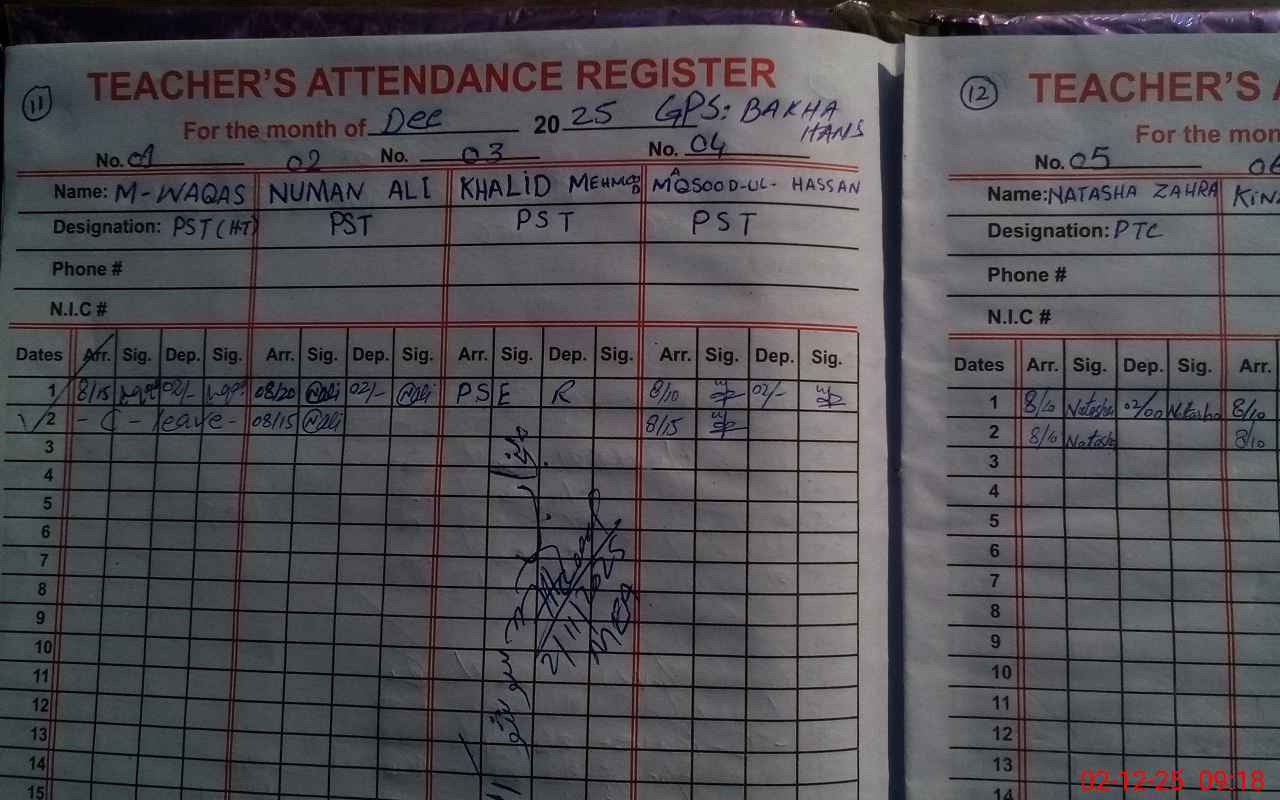 11
TEACHER'S ATTENDANCE REGISTER
For the month of Dec 2025 GPS: BAKHA HANS
No. 01 02 No. 03 No. 04
Name: M-WAQAS NUMAN ALI KHALID MEHMOOD MAQSOOD-UL-HASSAN
Designation: PST (HT) PST PST PST
Phone #
N.I.C #
Dates Arr. Sig. Dep. Sig. Arr. Sig. Dep. Sig. Arr. Sig. Dep. Sig. Arr. Sig. Dep. Sig.
1 8/15 02/- 08/20 02/- PSER 8/10 02/-
2 - C - leave - 08/15 8/15
3
4
5
6
7
8
9
10
11
12
13
14
15
2/11/2025
MEA
12
TEACHER'S A
For the mon
No. 05 06
Name: NATASHA ZAHRA KINZ
Designation: PTC
Phone #
N.I.C #
Dates Arr. Sig. Dep. Sig. Arr.
1 8/10 Natasha 02/00 Natasha 8/10
2 8/10 Natasha 8/10
3
4
5
6
7
8
9
10
11
12
13
14
02-12-25 09:18